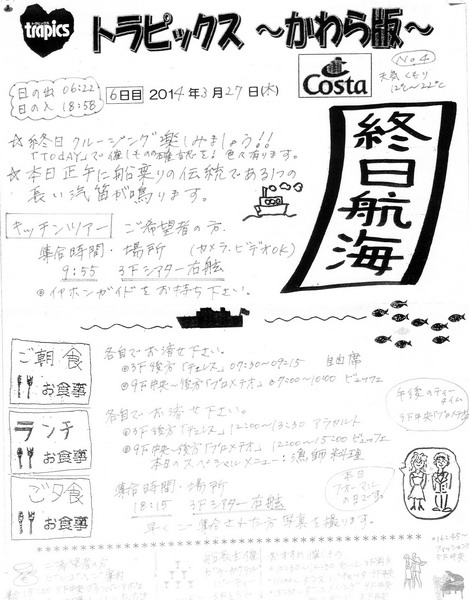 trapics
トラピックス ～かわら版～
No.4
日の出 06:22
日の入 18:58
6日目 2014年3月27日(木)
Costa
天気 くもり
12℃～22℃
終日航海
☆終日クルージング楽しみましょう!!
「TODAY」で催しものの確認を! 色々有ります。
☆本日正午に船乗りの伝統である1つの
長い汽笛が鳴ります。
キッチンツアー ご希望者の方.
集合時間・場所 (カメラ、ビデオOK)
9:55 3Fシアター右舷
◎イヤホンガイドをお持ち下さい。
ご朝食
お食事
各自でお済せ下さい。
◎3F後方「チェレス」 07:30～09:15 自由席
◎9F中央～後方「プロメテオ」 07:00～10:00 ビュッフェ
午後のティータイム
9F中央「プロメテオ」
ランチ
お食事
各自でお済せ下さい。
◎3F後方「チェレス」 12:00～13:30 アラカルト
◎9F中央～後方「プロメテオ」 12:00～15:00 ビュッフェ
本日のスペシャルメニュー:漁師料理
ご夕食
お食事
集合時間・場所
18:15 3Fシアター右舷
早くご集合された方 写真を撮ります。
本日
フォーマル
の日です。
ご希望者の方